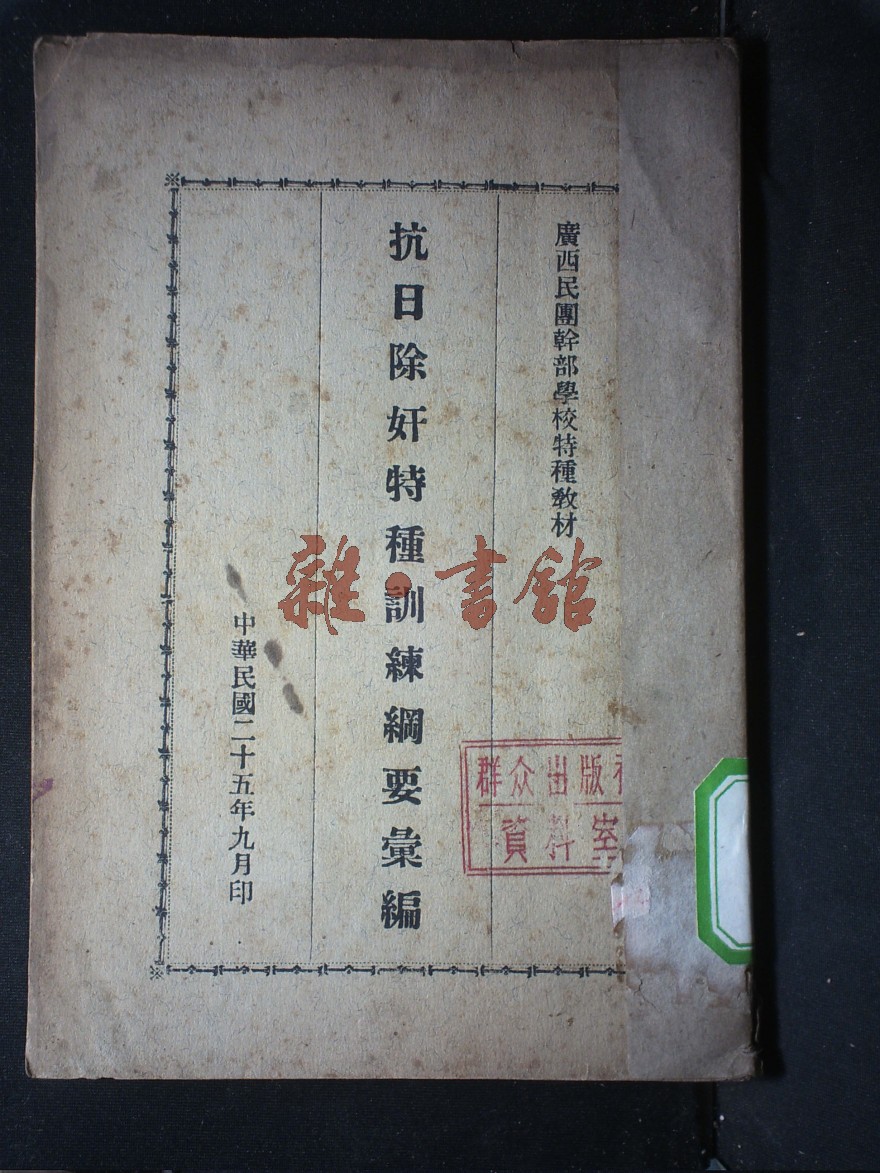 廣西民團幹部學校特種教材
抗日除奸特種訓練綱要彙編
中華民國二十五年九月印
雜·書館
群众出版社
資料室